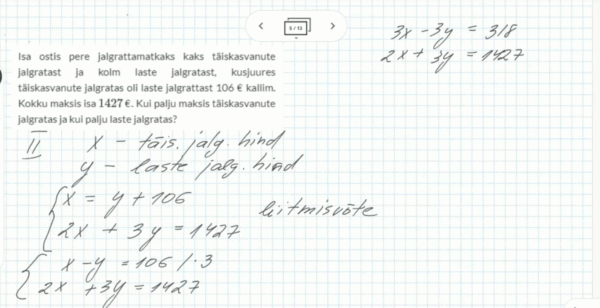 5 / 13
Isa ostis pere jalgrattamatkaks kaks täiskasvanute
jalgratast ja kolm laste jalgratast, kusjuures
täiskasvanute jalgratas oli laste jalgrattast 106 € kallim.
Kokku maksis isa 1427 €. Kui palju maksis täiskasvanute
jalgratas ja kui palju laste jalgratas?
II x - täis. jalg. hind
y - laste jalg. hind
x = y + 106
2x + 3y = 1427
liitmisvõte
x - y = 106 / · 3
2x + 3y = 1427
3x - 3y = 318
2x + 3y = 1427